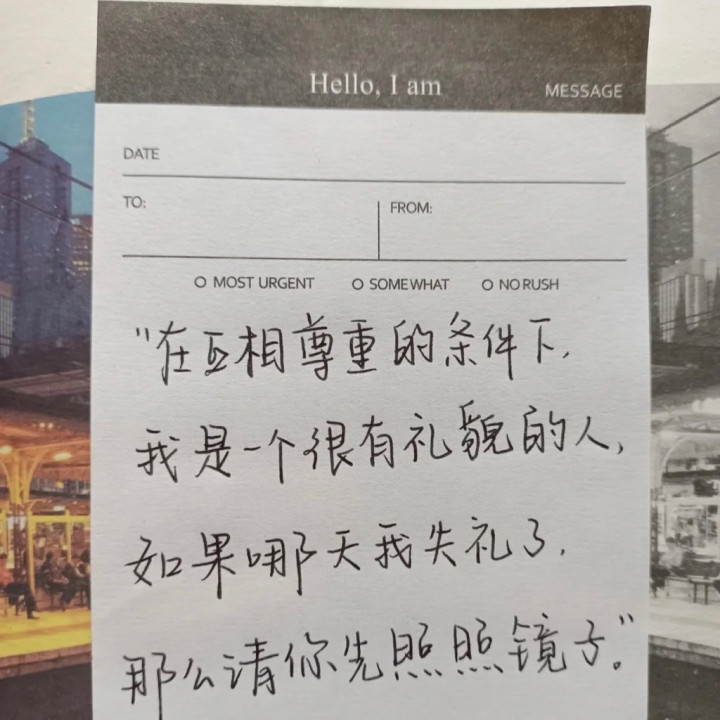 Hello, I am
MESSAGE
DATE
TO:
FROM:
MOST URGENT
SOMEWHAT
NO RUSH
"在互相尊重的条件下,
我是一个很有礼貌的人,
如果哪天我失礼了,
那么请你先照照镜子。"